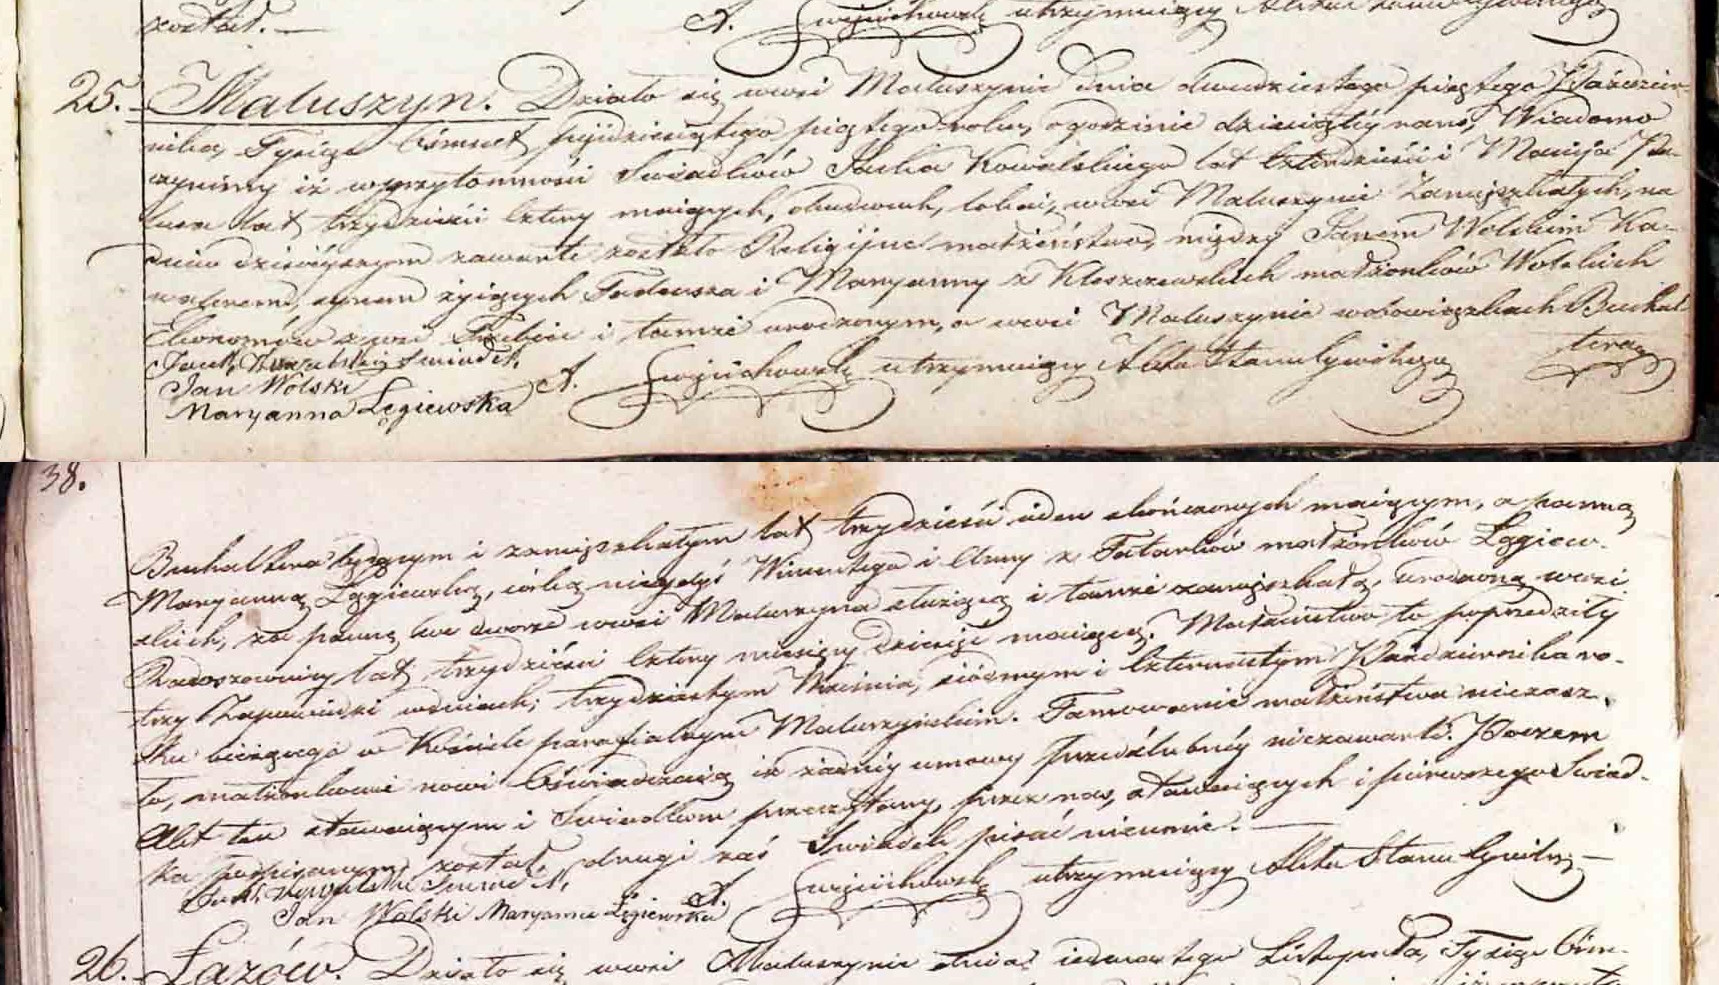 został. — A. Święcichowski utrzymuiący Akta Stanu Cywilnego
25. Maluszyn. Działo się we wsi Maluszynie dnia dwudziestego piątego Paździer-
nika, Tysiąc Ośmset pięćdziesiątego piątego roku, o godzinie dziesiątéy rano, Wiadomo
czynimy iż w przytomności Świadków Jacka Kowalskiego lat czterdzieści i Macieja
lat trzydzieści cztery maiących, obudwóch, we wsi Maluszynie Zamięszkałych, na
dniu dzisieyszym zawarte zostało Religiyne małżeństwo, między Janem Wolskim Ka-
walerem, synem żyiących Tadeusza i Maryanny z Kleszczewskich małżonków Wolskich
Ekonomów z wsi i tamże urodzonym, a we wsi Maluszynie w obowiązkach Buchal-
tera
Jacek Kowalski Świadek,
Jan Wolski
Maryanna Łęgiewska A. Święcichowski utrzymuiący Akta Stanu Cywilnego
38.
Buchaltera będącym i zamięszkałym lat trzydzieści ieden skończonych maiącym, a panną
Maryanną Łęgiewską, córką niegdyś Wincentego i Anny z Tatarków małżonków Łęgiew-
skich, za pannę we dworze we wsi Maluszynie służącą i tamże zamięszkałą, urodzoną we wsi
Radoszewnicy lat trzydzieści cztery miesięcy dziesięć maiącą. Małżeństwo to poprzedziły
trzy Zapowiedzi w dniach; trzydziestym Września, siódmym i czternastym Października ro-
ku bieżącego w Kościele parafialnym Maluszyńskim. Tamowanie małżeństwa niezasz-
ło, małżonkowie nowi Oświadczaią iż żadnéy umowy przedślubnéy niezawarli. Poczem
Akt ten stawaiącym i Świadkom przeczytany, przez nas, stawaiących i pierwszego Świad-
ka podpisanym został, drugi zaś Świadek pisać nieumie. —
Jacek Kowalski Świadek, A. Święcichowski utrzymuiący Akta Stanu Cywilng —
Jan Wolski Maryanna Łęgiewska
26. Łazów. Działo się we wsi Maluszynie dnia iedenastego Listopada, Tysiąc Ośm-